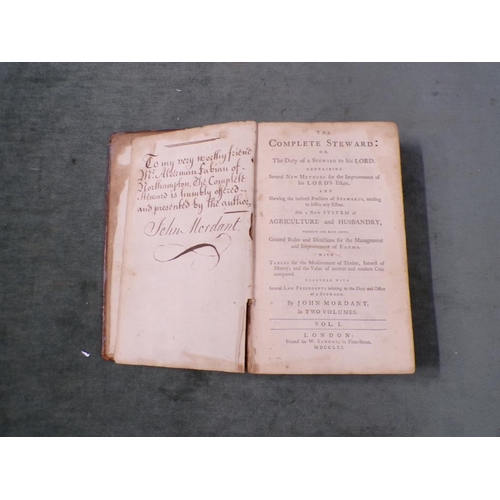 To my very worthy friend
Mr. Alderman Fabian of
Northampton, The Complete
Steward is humbly offered
and presented by the author,
John Mordant.
THE
COMPLETE STEWARD:
OR,
The Duty of a STEWARD to his LORD.
CONTAINING
Several NEW METHODS for the Improvement of
his LORD'S Estate.
AND
Shewing the indirect Practices of STEWARDS, tending
to lessen any Estate.
Also a New SYSTEM of
AGRICULTURE and HUSBANDRY,
General Rules and Directions for the Management
and Improvement of FARMS.
WITH
TABLES for the Measurement of Timber, Interest of
Money; and the Value of ancient and modern Coin
compared.
TOGETHER WITH
Several LAW PRECEDENTS relating to the Duty and Office
of a STEWARD.
By JOHN MORDANT.
In TWO VOLUMES.
VOL. I.
LONDON:
Printed for W. SANDBY, in Fleet-Street.
MDCCLXI.